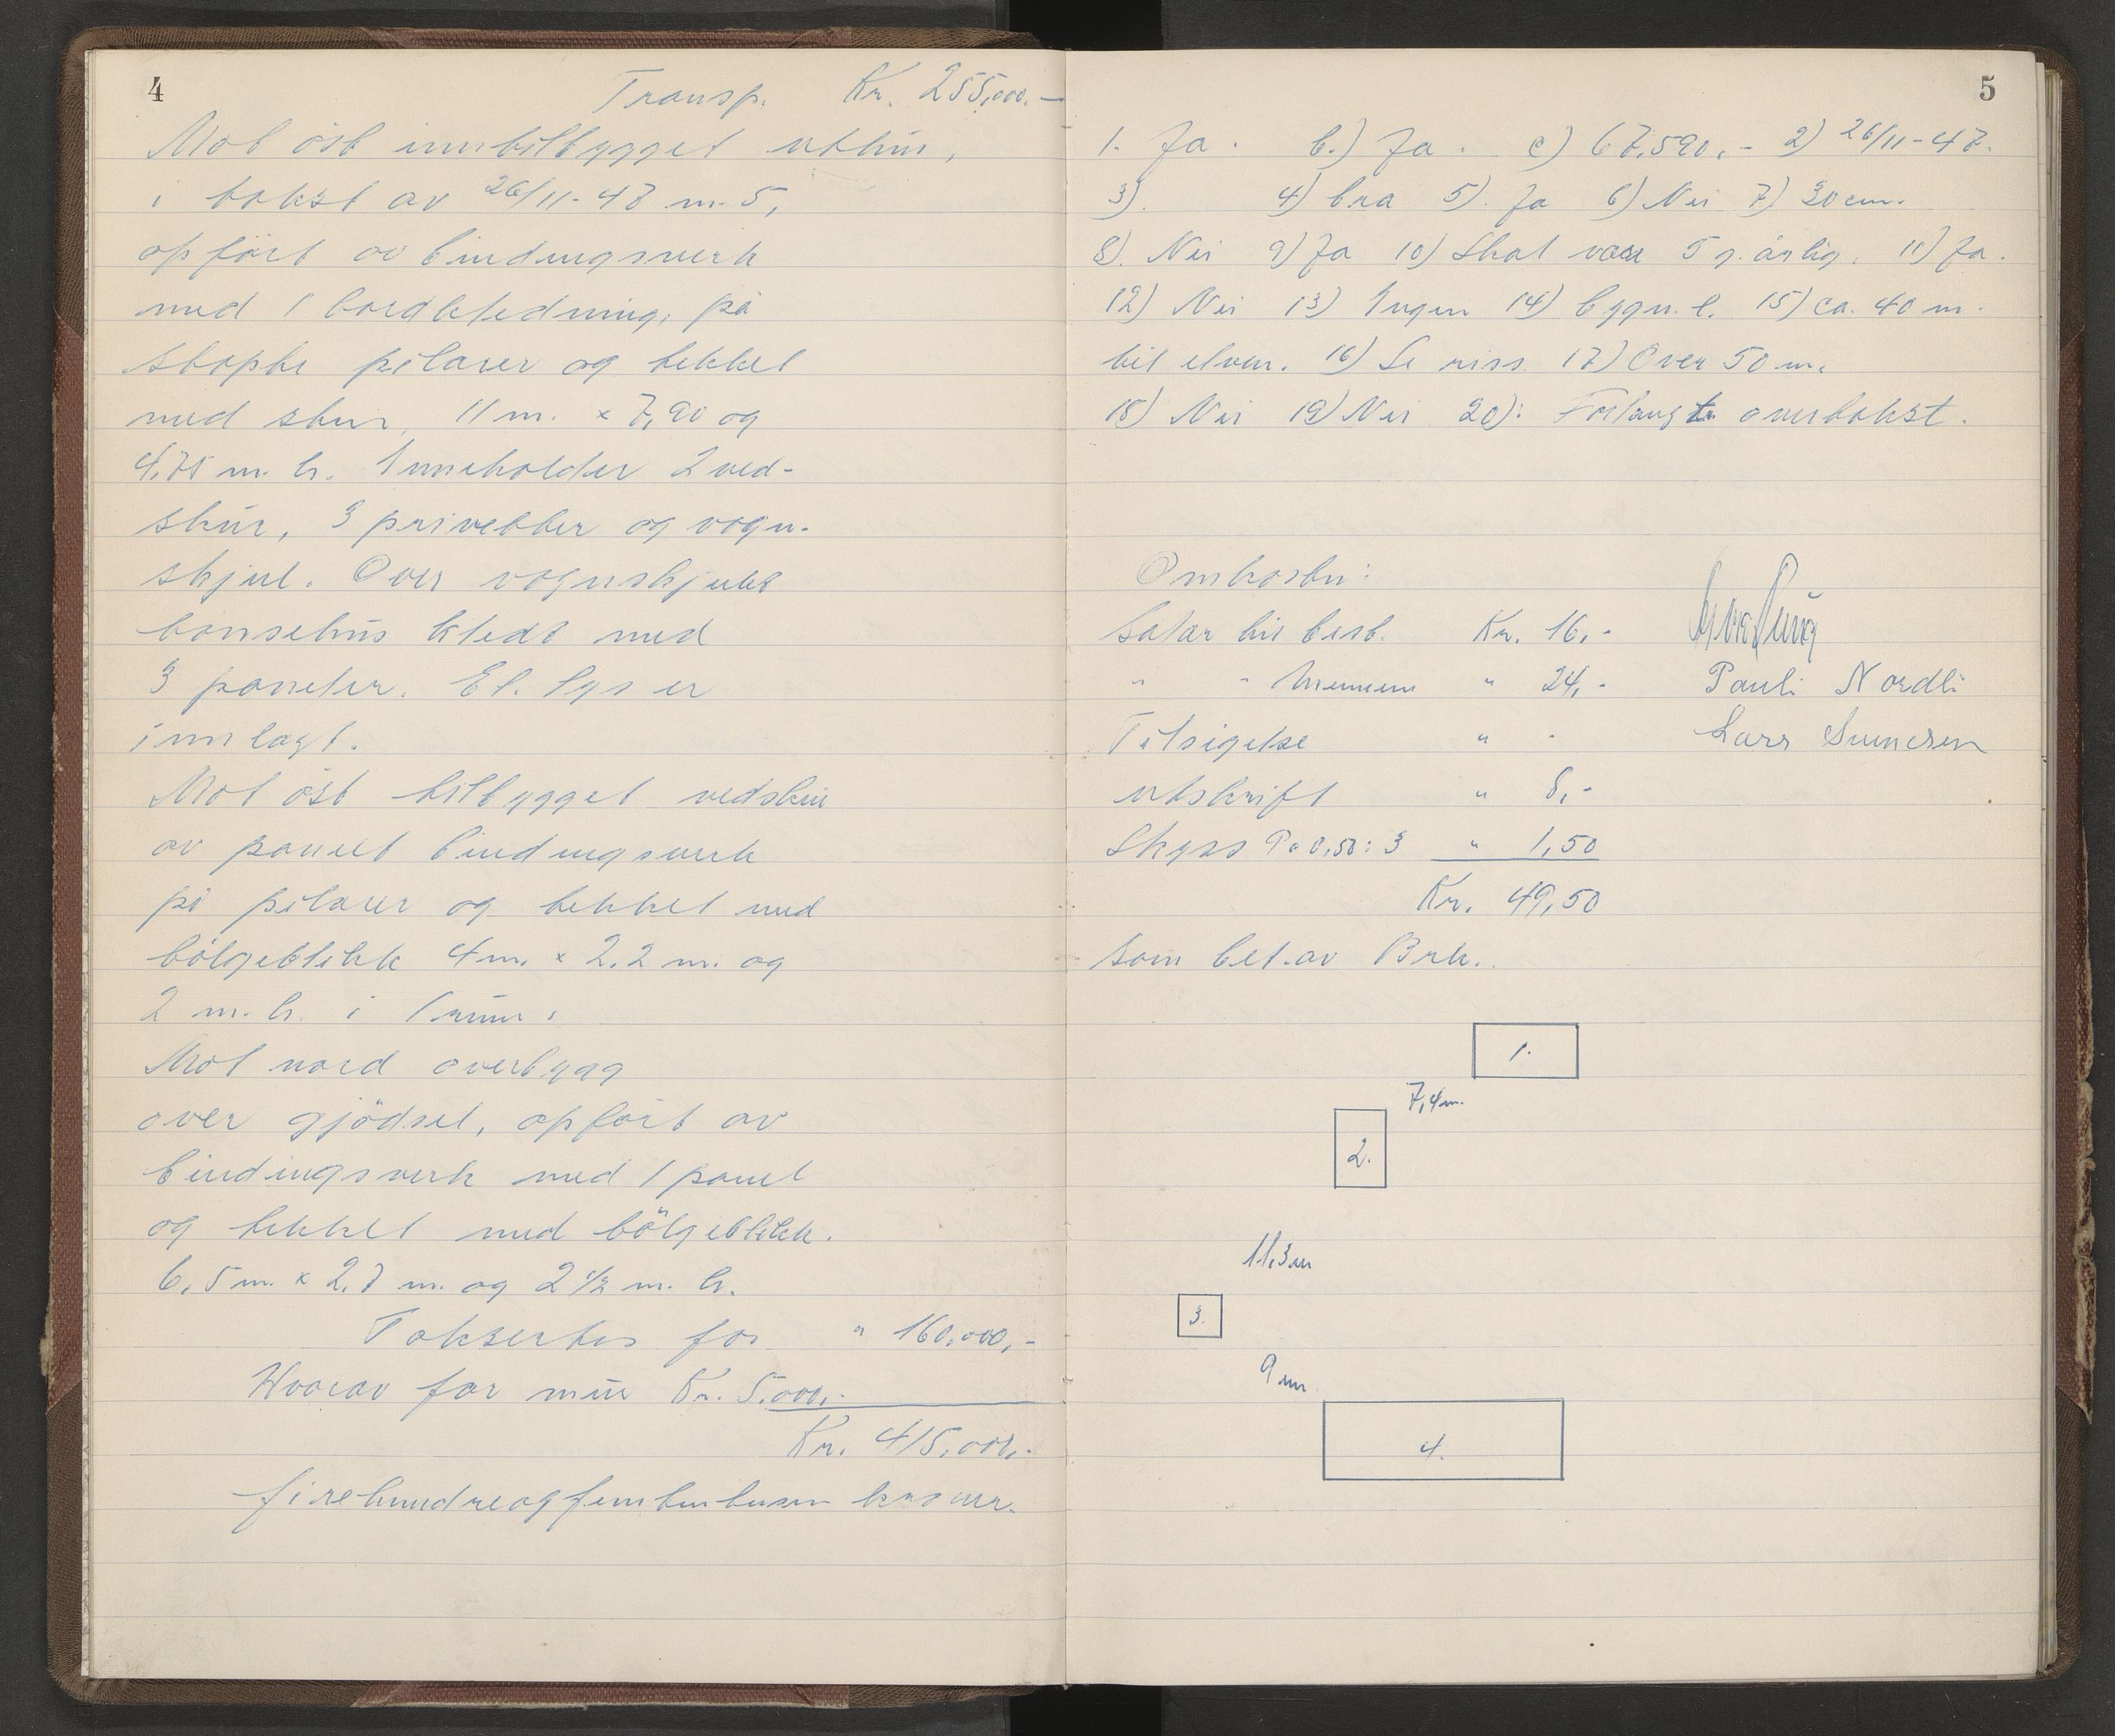 4
Transp. Kr. 255,000.-
Mot öst inntilbygget uthus,
i takst av 26/11-47 m. 5,
opført av bindingsverk
med 1 bordkledning, på
støpte pilarer og tekket
med skur, 11 m. x 7,90 og
4,75 m. h. Inneholder 2 ved-
skur, 3 privetter og vogn-
skjul. Over vognskjulet
hønsehus kledt med
3 paneler. El. lys er
innlagt.
Mot öst tilbygget vedskur
av panelt bindingsverk
på pilarer og tekket med
bölgeblikk 4 m. x 2.2 m. og
2 m. h. i 1 rum.
Mot nord overbygg
over gjödsel, opført av
bindingsverk med 1 panel
og tekket med bölgeblikk.
6,5 m. x 2,7 m. og 2 1/2 m. h.
Taksertes for " 160,000,-
Hvorav for mur Kr. 5.000,-
Kr. 415,000,-
firehundreogfemtentusen kroner.
5
1. Ja. b.) Ja. c) 67,590,- 2) 26/11-47.
3). 4) bra 5). Ja 6) Nei 7) 30 cm.
8). Nei 9) Ja 10) Skal være 5 g. årlig. 11) Ja.
12) Nei 13) Ingen 14) bygn. l. 15) ca. 40 m.
til elven. 16) Se riss. 17) Over 50 m.
18) Nei 19) Nei 20): Forlangte overtakst.
Omkostn:
Salar til best. Kr. 16,-
" " mennene " 24,- Pauli Nordli
Tilsigelse " - Lars
utskrift " 8,-
Skyss P. 0,50: 3 " 1,50
Kr. 49,50
som bet. av Brk.
1.
7,4 m.
2.
11,3 m
3.
9 m.
4.